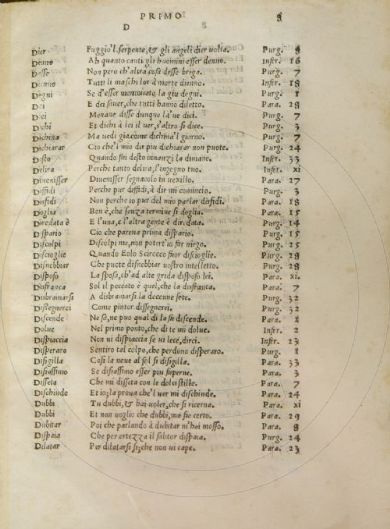 PRIMO 8
D
Dier Fuggio'l serpente, & gli angeli dier volta. Purg. 8
Dienno Ab quanto cauti gli huomini esser denno. Infer. 16
Desse Non pero ch'altra cosa desse briga. Purg. 7
Dienno Tutti li lor a morte dienno. Infer. 18
Degni Se d'esser mentovato la giu degni. Purg. 1
Dei E dei saver, che tutti hanno diletto. Para. 28
Dici Morane disse dunque la've dici. Purg. 7
Duchi Et dichi à lei il ver, s'altro si dice. Purg. 3
Dichina Ma vedi gia come dichina'l giorno. Purg. 7
Dichiarar Cio che'l mio dir piu dichiarar non puote. Purg. 24
Desto Quando fui desto innanzi la dimane. Infer. 33
Delira Perche tanto delira, l'ingegno tuo. Infer. xi
Divenisser Divenisser segnacolo in vexillo. Para. 27
Diffidi Perche pur diffidi, à dir mi comincio. Purg. 3
Disfidi Non perche io pur del mio parlar disfidi. Para. 18
Doglia Ben è, che senza termine si doglia. Para. 15
Diredata è E l'una, e l'altra gente è diredata. Purg. 14
Dispario Cio che pareva prima dispario. Purg. 15
Discolpi Discolpi me, non potert'io far nego. Purg. 25
Discioglie Quando Eolo Scirocco fuor discioglie. Purg. 28
Disnebbiar Che puote disnebbiar vostro intelletto. Purg. 28
Disposò La sposa, ch'ad alte grida disposò lei. Para. xi.
Disfranca Sol il peccato è quel, che la disfranca. Para. 7
Disbramarsi A disbramarsi la decenne sete. Purg. 32
Dissegnerei Come pintor dissegnerei. Purg. 32
Discende Ne sò, ne puo qual di la su discende. Para. 1
Dolve Nel primo ponto, che di te mi dolve. Infer. 2
Dispiaccia Non vi dispiaccia se vi lece, dirci. Infer. 23
Disperaro Sentiro tal colpo, che perdono disperaro. Purg. 1
Disigilla Cosi la neve al sol si disigilla. Para. 33
Disiassimo Se disiassimo esser piu superne. Para. 3
Disseta Che mi disseta con le dolci stille. Para. 7
Dischiude Et io la prova che'l ver mi dischiude. Para. 24
Dubbi Tu dubbi, & hai voler, che si ricerna. Para. xi
Dubbi Et non voglio che dubbi, ma sie certo. Para. 29
Dubitar Poi che parlando à dubitar m'hai mosso. Purg. 8
Dispaia Che per artezza il salitor dispaia. Purg. 24
Dilatar Per dilatarsi si, che non vi cape. Para. 23